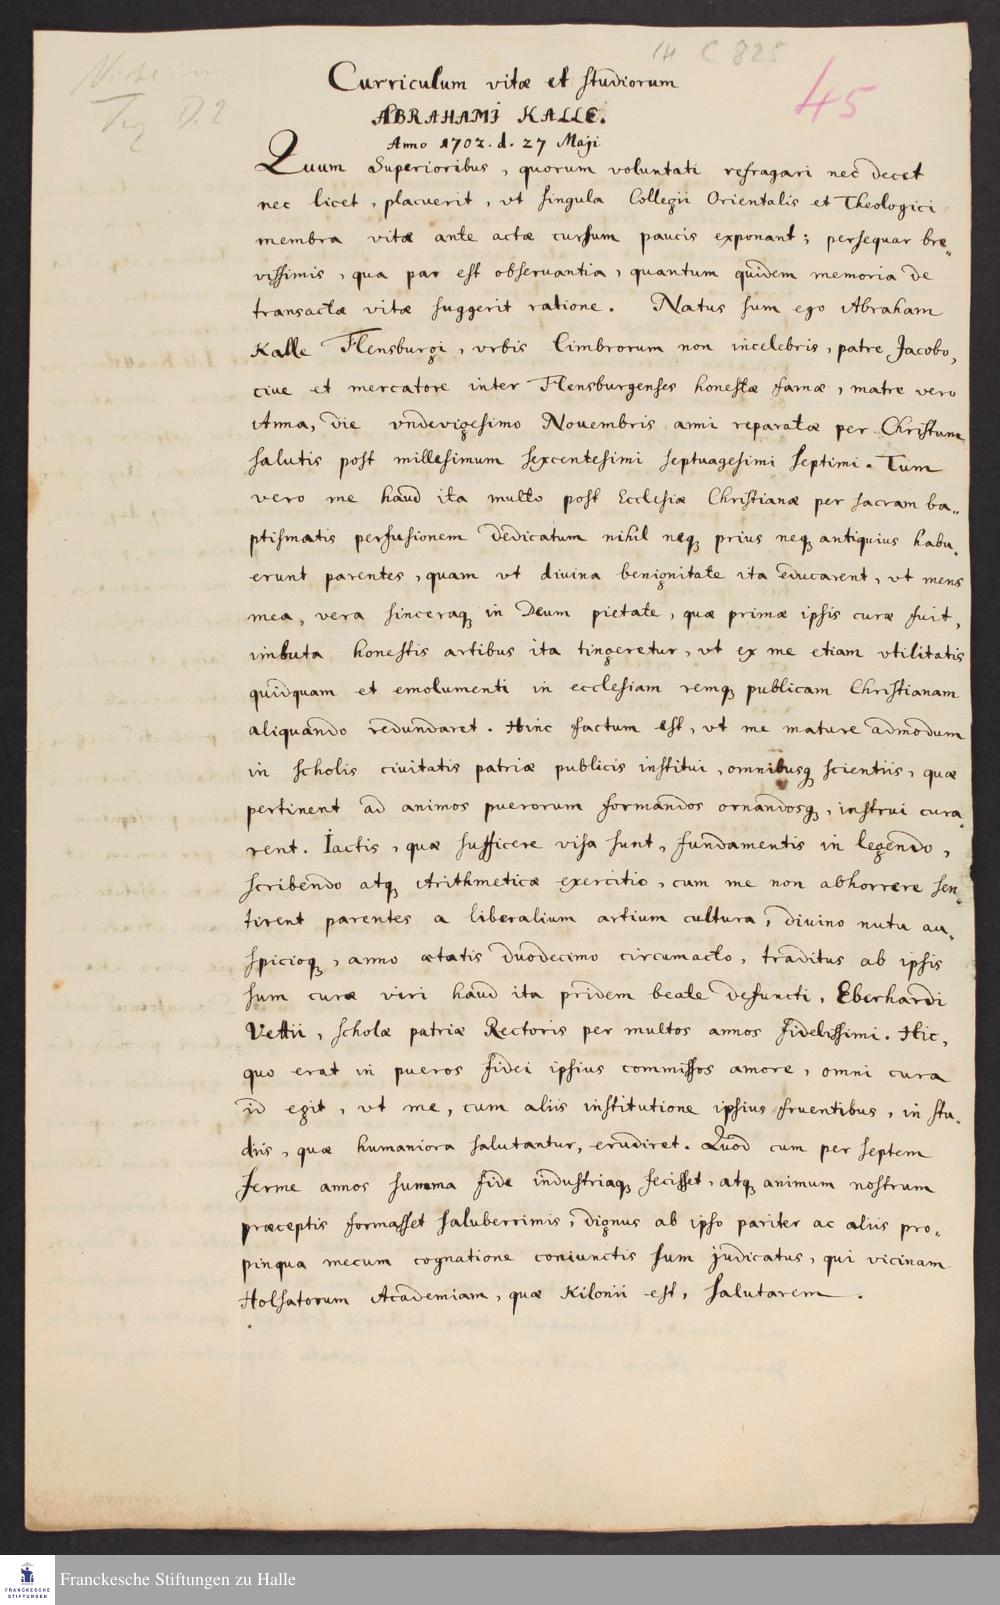 14 C 825
45
D.2
Curriculum vitæ et studiorum
ABRAHAMI KALLE.
Anno 1702. d. 27 Maji
Quum Superioribus, quorum voluntati refragari nec decet
nec licet, placuerit, vt singula Collegii Orientalis et Theologici
membra vitæ ante actæ cursum paucis exponant; persequar bre„
vissimis, qua par est obseruantia, quantum quidem memoria de
transactæ vitæ suggerit ratione. Natus sum ego Abraham
Kalle Flensburgi, vrbis Cimbrorum non incelebris, patre Jacobo,
ciue et mercatore inter Flensburgenses honestæ famæ, matre vero
Anna, die vndevigesimo Nouembris anni reparatæ per Christum
salutis post millesimum sexcentesimi septuagesimi septimi. Tum
vero me haud ita multo post Ecclesiæ Christianæ per sacram ba„
ptismatis perfusionem dedicatum nihil neq prius neq antiquius habu„
erunt parentes, quam vt diuina benignitate ita educarent, vt mens
mea, vera sinceraq in Deum pietate, quæ primæ ipsis curæ fuit,
imbuta honestis artibus ita tingeretur, vt ex me etiam vtilitatis
quidquam et emolumenti in ecclesiam remq publicam Christianam
aliquando redundaret. Hinc factum est, vt me mature admodum
in scholis ciuitatis patriæ publicis institui, omnibusq scientiis, quæ
pertinent ad animos puerorum formandos ornandosq, instrui cura„
rent. Iactis, quæ sufficere visa sunt, fundamentis in legendo,
scribendo atq Arithmeticæ exercitio, cum me non abhorrere sen„
tirent parentes a liberalium artium cultura, diuino nutu au„
spicioq, anno ætatis duodecimo circumacto, traditus ab ipsis
sum curæ viri haud ita pridem beate defuncti, Eberhardi
Vettii, scholæ patriæ Rectoris per multos annos fidelissimi. Hic,
quo erat in pueros fidei ipsius commissos amore, omni cura
id egit, vt me, cum aliis institutione ipsius fruentibus, in stu„
diis, quæ humaniora salutantur, erudiret. Quod cum per septem
ferme annos summa fide industriaq fecisset, atq animum nostrum
præceptis formasset saluberrimis, dignus ab ipso pariter ac aliis pro„
pinqua mecum cognatione coniunctis sum judicatus, qui vicinam
Holsatorum Academiam, quæ Kilonii est, salutarem.
FRANCKESCHE
STIFTUNGEN
Franckesche Stiftungen zu Halle